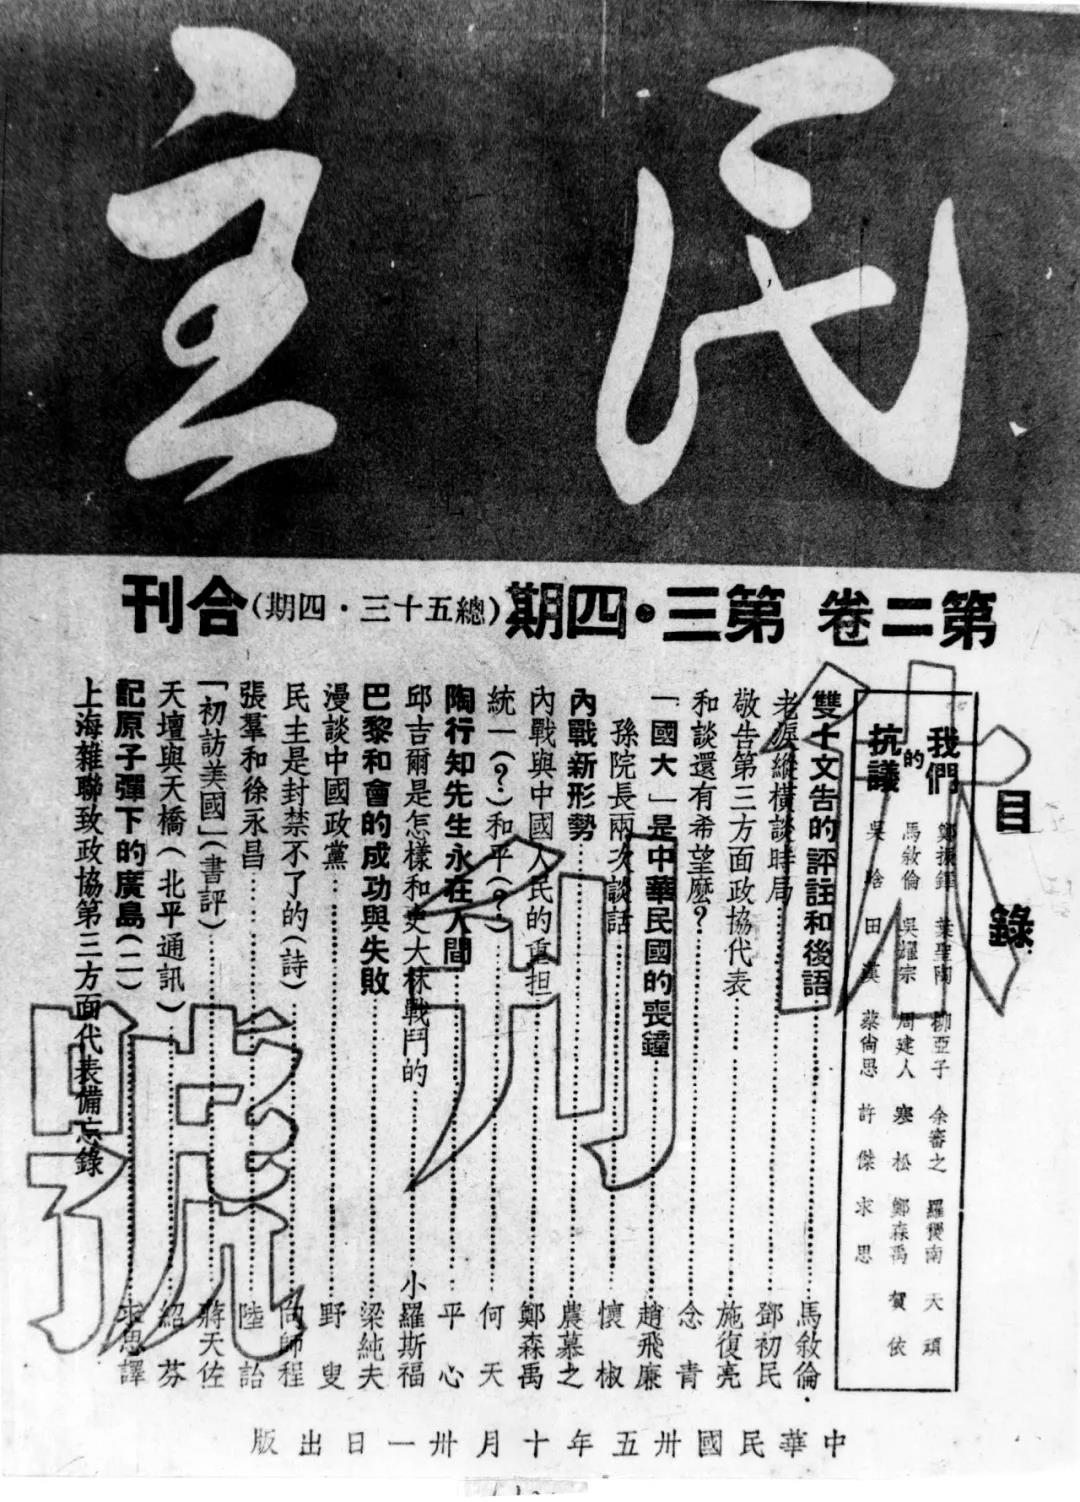 民主
第二卷 第三·四期(總五十三·四期)合刊
休刊號
目錄
我們的抗議
鄭振鐸 葉聖陶 柳亞子 余審之 羅稷南 天頑
馬敘倫 吳耀宗 周建人 寒松 鄭森禹 賀依
吳晗 田漢 蔡尚思 許傑 求思
雙十文告的評註和後語……馬敘倫
老 縱橫談時局……鄧初民
敬告第三方面政協代表……施復亮
和談還有希望麼?……念青
「國大」是中華民國的喪鐘……趙飛廉
孫院長兩次談話……懷椒
內戰新形勢……農慕之
內戰與中國人民的重担……鄭森禹
統一(?)和平(?)……何天
陶行知先生永在人間……平心
邱吉爾是怎樣和史大林戰鬥的……小羅斯福
巴黎和會的成功與失敗……梁純夫
漫談中國政黨……野叟
民主是封禁不了的(詩)……向師程
張羣和徐永昌……陸詒
「初訪美國」(書評)……蔣天佐
天壇與天橋(北平通訊)……紹芬
記原子彈下的廣島(二)……求思譯
上海雜聯致政協第三方面代表備忘錄
中華民國卅五年十月卅一日出版